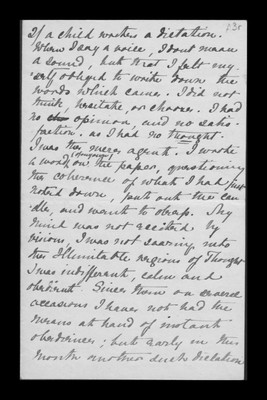 138
If a child writes a dictation.
When I say a voice, I don't mean
a sound, but that I felt my-
self obliged to write down the
words which came. I did not
think, hesitate, or choose. I had
no opinion, and no satis-
faction. as I had no thought.
I was the mere agent. I wrote
on the paper, questioning
the coherence of what I had just
noted down, put out the can-
dle, and went to sleep. My
mind was not excited by
visions, I was not soaring into
the Illimitable regions of thought
I was indifferent, calm and
obedient. Since then on several
occasions I have not had the
means at hand of instant
obedience; but early in this
month another such dictation